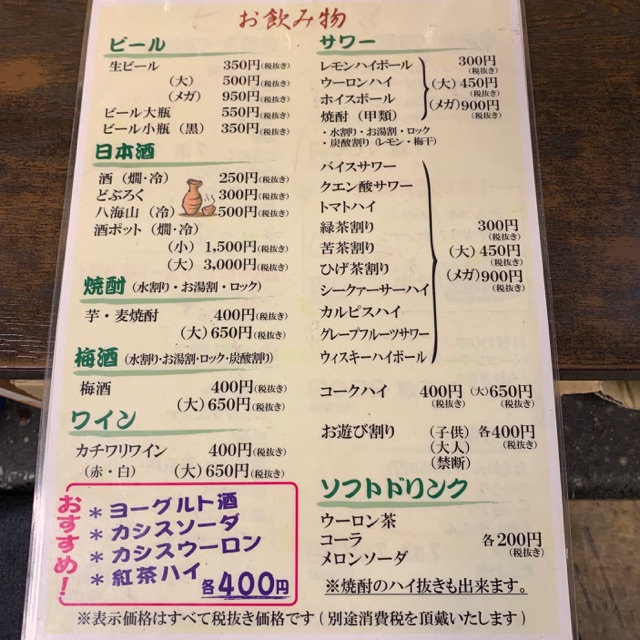 お飲み物
ビール
生ビール 350円(税抜き)
(大) 500円(税抜き)
(メガ) 950円(税抜き)
ビール大瓶 550円(税抜き)
ビール小瓶(黒) 350円(税抜き)
日本酒
酒(燗・冷) 250円(税抜き)
どぶろく 300円(税抜き)
八海山(冷) 500円(税抜き)
酒ポット(燗・冷)
(小) 1,500円(税抜き)
(大) 3,000円(税抜き)
焼酎(水割り・お湯割・ロック)
芋・麦焼酎 400円(税抜き)
(大) 650円(税抜き)
梅酒(水割り・お湯割・ロック・炭酸割り)
梅酒 400円(税抜き)
(大) 650円(税抜き)
ワイン
カチワリワイン 400円(税抜き)
(赤・白) (大) 650円(税抜き)
おすすめ!
*ヨーグルト酒
*カシスソーダ
*カシスウーロン
*紅茶ハイ 各400円
サワー
レモンハイボール
ウーロンハイ
ホイスボール
焼酎(甲類)
300円(税抜き)
(大) 450円(税抜き)
(メガ) 900円(税抜き)
・水割り・お湯割・ロック
・炭酸割り(レモン・梅干)
バイスサワー
クエン酸サワー
トマトハイ
緑茶割り
苦茶割り
ひげ茶割り
シークァーサーハイ
カルピスハイ
グレープフルーツサワー
ウィスキーハイボール
300円(税抜き)
(大) 450円(税抜き)
(メガ) 900円(税抜き)
コークハイ 400円(税抜き) (大) 650円(税抜き)
お遊び割り (子供) 各400円(税抜き)
(大人)
(禁断)
ソフトドリンク
ウーロン茶
コーラ 各200円(税抜き)
メロンソーダ
※焼酎のハイ抜きも出来ます。
※表示価格はすべて税抜き価格です(別途消費税を頂戴いたします)